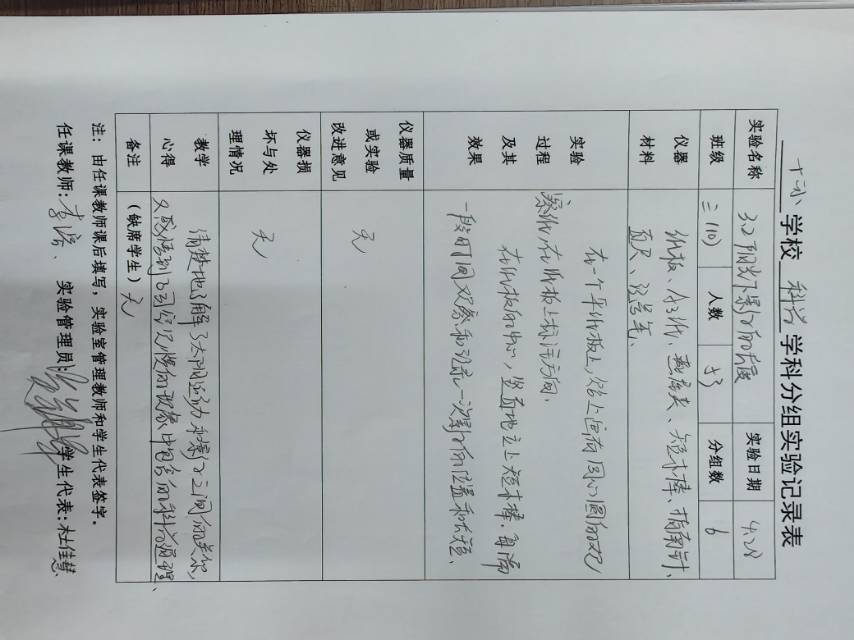 十小 学校 科学 学科分组实验记录表
实验名称 3.2阳光下影子的长度 实验日期 4.28
班级 三(10) 人数 53 分组数 6
仪器材料 纸板、白纸、 短木棒、指南针、
直尺、记号笔、
实验过程及其效果
在一个平纸板上,贴上画有同心圆的记
录纸,在纸板上标注方向.
在纸板的中心,垂直地立上短木棒.每隔
一段时间观察和记录一次影子的位置和长短、
仪器质量或实验改进意见 无
仪器损坏与处理情况 无
教学心得 清楚地了解了太阳运动和影子之间的关系,
又感悟到了司空见惯的现象中包含的科学道理、
备注 (缺席学生) 无
注:由任课教师课后填写,实验室管理教师和学生代表签字。
任课教师: 实验管理员: 学生代表:杜佳慧